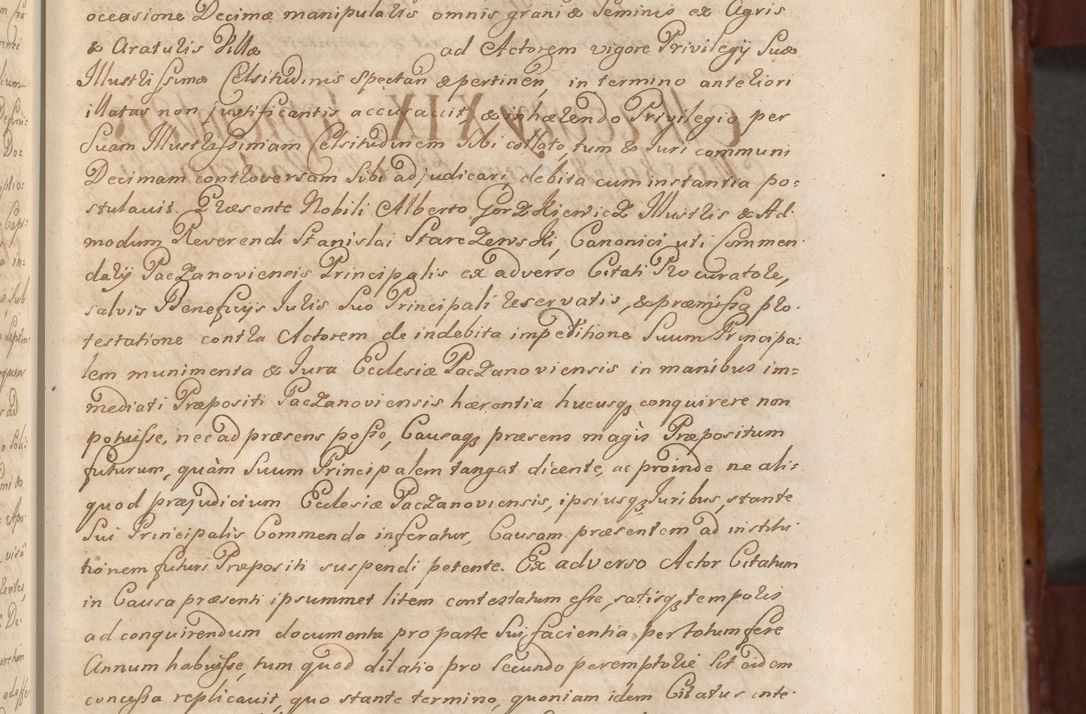 occasione Decimæ manipulalis omnis grani & seminis ex Agris
& Aratulis Villæ ad Actorem vigore Privilegij Suæ
Illustrissimæ Celsitudinis spectan & pertinen, in termino anteriori
illatas non justificantis accusavit, & inhærendo Privilegio per
Suam Illustrissimam Celsitudinem sibi collato, tum & Juri communi
Decimam controversam sibi adjudicari, debita cum instantia po=
stulavit. Præsente Nobili Alberto Gorzkiewicz Illustris & Ad
modum Reverendi Stanislai Starczewski, Canonici uti Commen
darij Paczanoviensis Principalis ex adverso Citati Procuratore,
salvis Beneficijs Juris Suo Principali reservatis, & præmissa pro-
testatione contra Actorem de indebita impetitione Suum Principa=
lem munimenta & Jura Ecclesiæ Paczanoviensis in manibus im=
mediati Præpositi Paczanoviensis hærentia hucusq conquirere non
potuisse, nec ad præsens posse, Causaq præsens magis Præpositum
futurum, quàm Suum Principalem tangat dicente, ac proinde ne ali=
quod præjudicium Ecclesiæ Paczanoviensis, ipsiusq Juribus, stante
Sui Principalis Commenda inferatur, Causam præsentem ad institu
tionem futuri Præpositi suspendi petente. Ex adverso Actor Citatum
in Causa præsenti ipsummet litem contestatum esse, satisq temporis
ad conquirendum documenta pro parte Sui facientia, per totum fere
Annum habuisse, tum quod dilatio pro secundo peremptorie sit eidem
concessa replicavit, quo stante termino, quoniam idem Citatus inte-